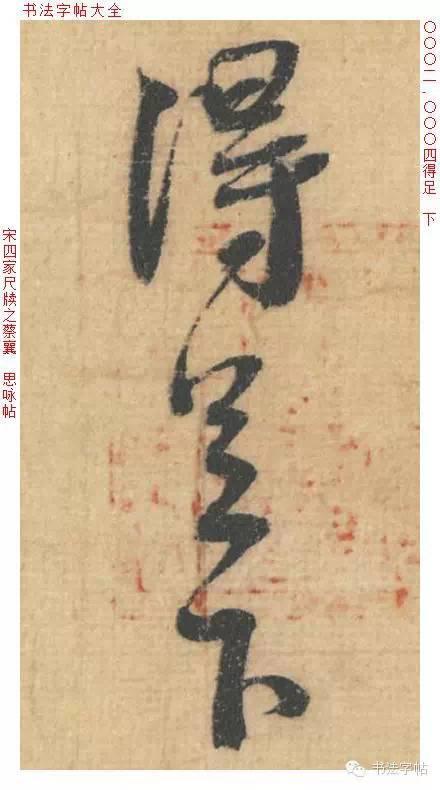 书法字帖大全
〇〇〇二.〇〇〇四得足 下
得足下
宋四家尺牍之蔡襄 思咏帖
书法字帖